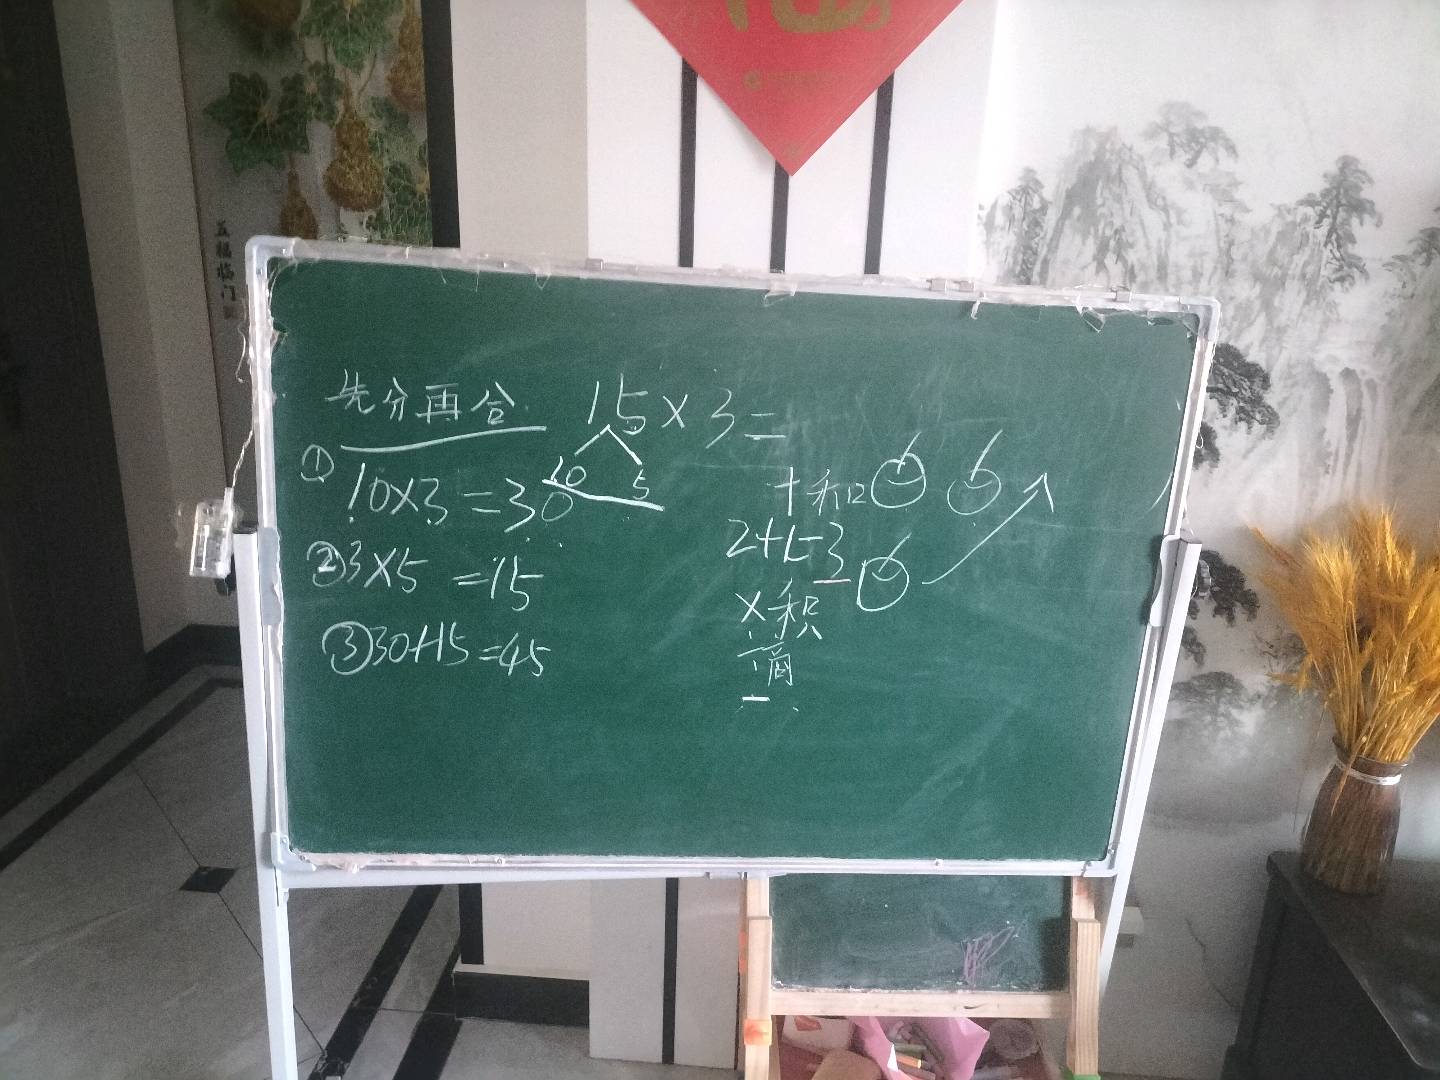 五福临门
先分再合
15×3=
10 5
①10×3=30
②3×5=15
③30+15=45
+和
2+1=3
×积
滴